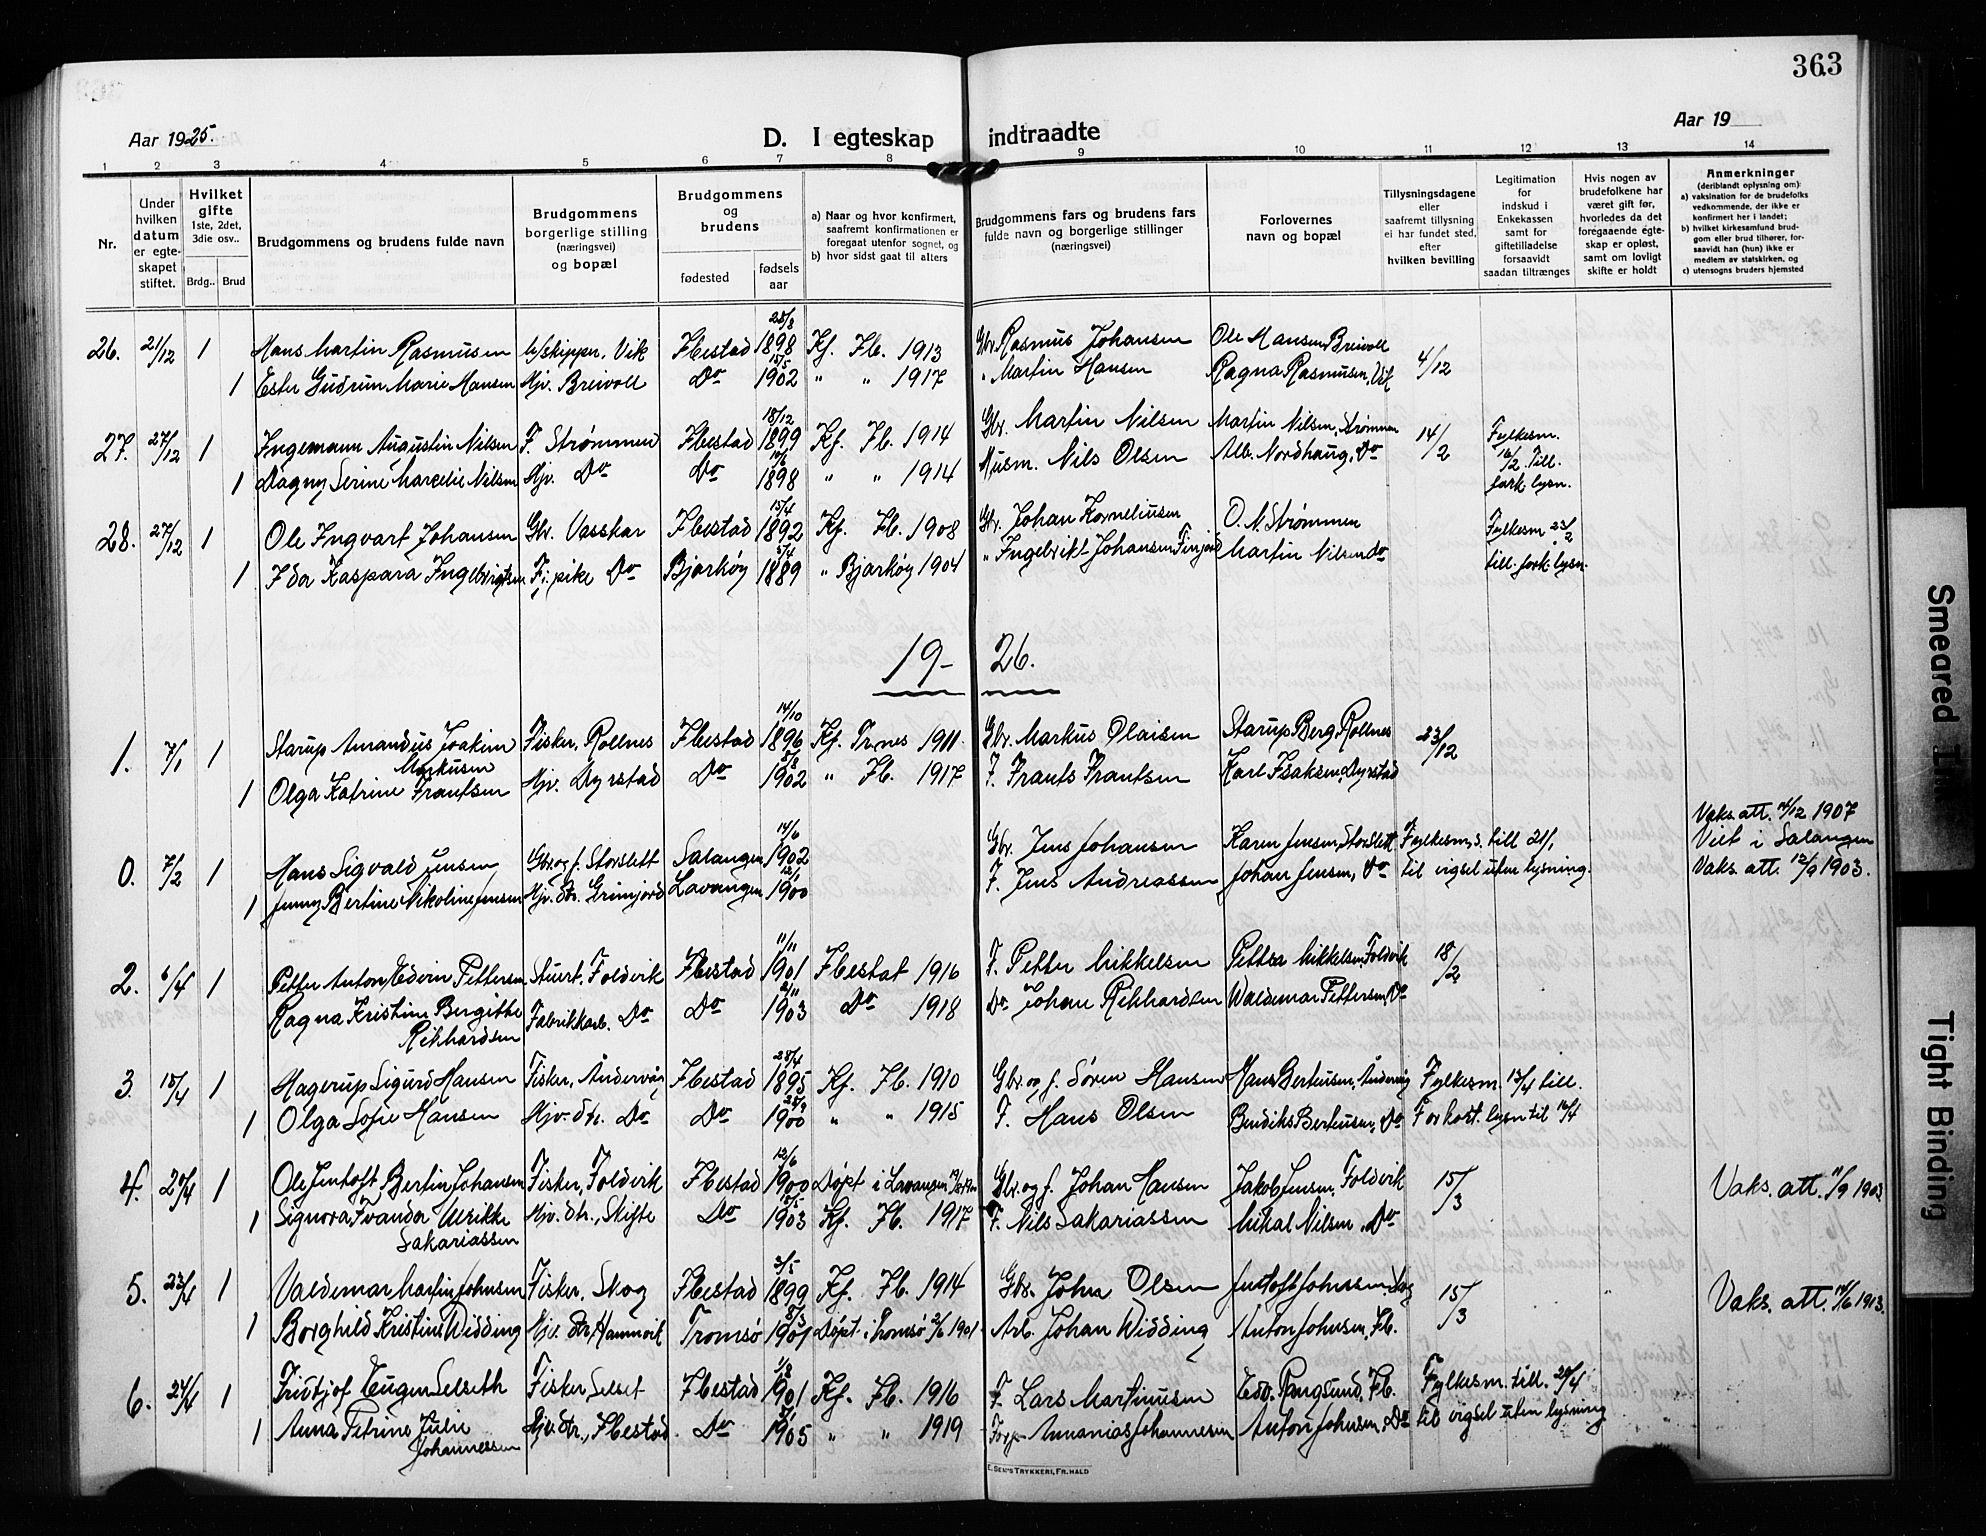 363
Aar 1925.
D. I egteskap indtraadte
Aar 19
1 2 3 4 5 6 7 8 9 10 11 12 13 14
Nr.
Under hvilken datum er egte-skapet stiftet.
Hvilket gifte 1ste, 2det, 3die osv..
Brdg.. Brud
Brudgommens og brudens fulde navn
Brudgommens borgerlige stilling (næringsvei) og bopæl
Brudgommens og brudens
fødested
fødsels aar
a) Naar og hvor konfirmert, saafremt konfirmationen er foregaat utenfor sognet, og
b) hvor sidst gaat til alters
Brudgommens fars og brudens fars fulde navn og borgerlige stillinger (næringsvei)
Forlovernes navn og bopæl
Tillysningsdagene eller saafremt tillysning ei har fundet sted, efter hvilken bevilling
Legitimation for indskud i Enkekassen samt for giftetilladelse forsaavidt saadan tiltrænges
Hvis nogen av brudefolkene har været gift før, hvorledes da det foregaaende egte-skap er opløst, samt om lovligt skifte er holdt
Anmerkninger
(deriblandt oplysning om):
a) vaksination for de brudefolks vedkommende, der ikke er konfirmert her i landet;
b) hvilket kirkesamfund brud-gom eller brud tilhører, for-saavidt han (hun) ikke er medlem av statskirken, og
c) utensogns bruders hjemsted
26. 21/12 1 Hans Martin Rasmusen Skipper, Vik Ibestad 28/8 1898 Kf. Ib. 1913 Gbr. Rasmus Johansen Ole Hansen Breivoll 4/12
1 Ester Gudrun Marie Hansen Hjv. Breivoll Do 15/5 1902 " " 1917 " Martin Hansen Ragna Rasmusen, Vik
27. 27/12 1 Ingemann Augustin Nilsen F. Strømmen Ibestad 18/12 1899 Kf. Ib. 1914 Gbr. Martin Nilsen Martin Nilsen, Strømmen 14/2 Fylkesm. 16/2 Till. fork. lysn.
1 Dagny Serine Marcelie Nilsen Hjv. Do Do 1898 " " 1914 Husm. Nils Olsen Alb. Nordhaug, Do
28. 27/12 1 Ole Ingvart Johansen Gbr. Vasskar Ibestad 15/4 1892 Kf. Ib. 1908 Gbr. Johan Korneliusen O. N. Strømmen Fylkesm 23/2 till. fork. lysn.
1 Ida Kaspara Ingebrigtsen Fi. pike Do Bjarkøy 5/4 1889 " Bjarkøy 1904 " Ingebrikt Johansen Finjord Martin Nilsen do
19- 26.
1. 7/1 1 Starup Amandus Joakim Markusen Fisker, Rollnes Ibestad 14/10 1896 Kf. Trnes 1911. Gbr. Markus Olaisen Starup Berg, Rollnes 23/12
1 Olga Katrine Frantsen Hjv. Dyrstad Do 5/8 1902 " Ib. 1917 F. Frants Frantsen Karl Isaksen, Dyrstad
0. 7/2 1 Hans Sigvald Jensen Gbr og f. Storslett Salangen 14/6 1902 Gbr. Jens Johansen Karen Jensen, Storslett Fylkesm,s. till 21/1 Vaks. att. 14/12 1907 Viet i Salangen
1 Jenny Bertine Nikoline Jensen Hjv. dtr. Grimjord Lavangen 12/1 1900 F. Jens Andreassen Johan Jensen, Do til vigsel uten lysning. Vaks. att. 12/9 1903.
2. 6/4 1 Petter Anton Edvin Pettersen Stuert. Foldvik Ibestad 11/11 1901 Ibestat 1916 F. Petter Mikkelsen Pettra Mikkelsen, Foldvik 18/2
Ragna Kristine Bergitte Rikhardsen Fabrikkarb. Do Do 2/11 1903 Do 1918 Do Johan Rikhardsen Waldemar Pettersen, Do
3. 15/4 1 Hagerup Sigurd Hansen Fisker, Åndervåg Ibestad 28/4 1895 Kf. Ib. 1910 Gbr. og f. Søren Hansen Hans Berteusen, Åndervåg Fylkesm. 13/4 till.
1 Olga Sofie Hansen Hjv. dtr. Do Do 28/9 1900 " " 1915 F. Hans Olsen Bendiks Berteusen, Do Forkort. lysn til 16/4
4. 20/4 1 Ole Jentoft Bertin Johansen Fisker, Foldvik Ibestad 12/6 1900 Døpt i Lavangen Gbr. og f. Johan Hansen Jakob Jensen, Foldvik 15/3 Vaks. att. 11/9 1903
1 Signora Ivanda Ulrikke Sakariassen Hjv. dtr., Skifte Do 15/5 1903 Kf. Ib. 1917 F. Nils Sakariassen Mikal Nilsen, Do
5. 23/4 1 Valdemar Martin Johnsen Fisker, Skog Ibestad 3/5 1899 Kf. Ib. 1914 Gbr. John Olsen Jentoft Johnsen, Skog 15/3 Vaks. att. 14/6 1913.
1 Borghild Kristine Widding Hjv. dtr, Hamnvik Tromsø 5/3 1901 Døpt i Tromsø 2/6 1901 Arb. Johan Widding Anton Johnsen, Ib.
6. 24/4 1 Fridtjof Eugen Selseth Fisker, Selset Ibestad 1/8 1901 Kf. Ib. 1916 F. Lars Martinusen Edv. Rangsund, Ib. Fylkesm. till. 20/4
1 Anna Petrine Julie Johannessen Hjv. dtr., Ibestad. Do 5/1 1905 " " 1919 Forp. Ananias Johannesen Anton Johnsen, Do til vigsel uten lysning
E. SEM'S TRYKKERI, FR.HALD
Smeared Ink
Tight Binding